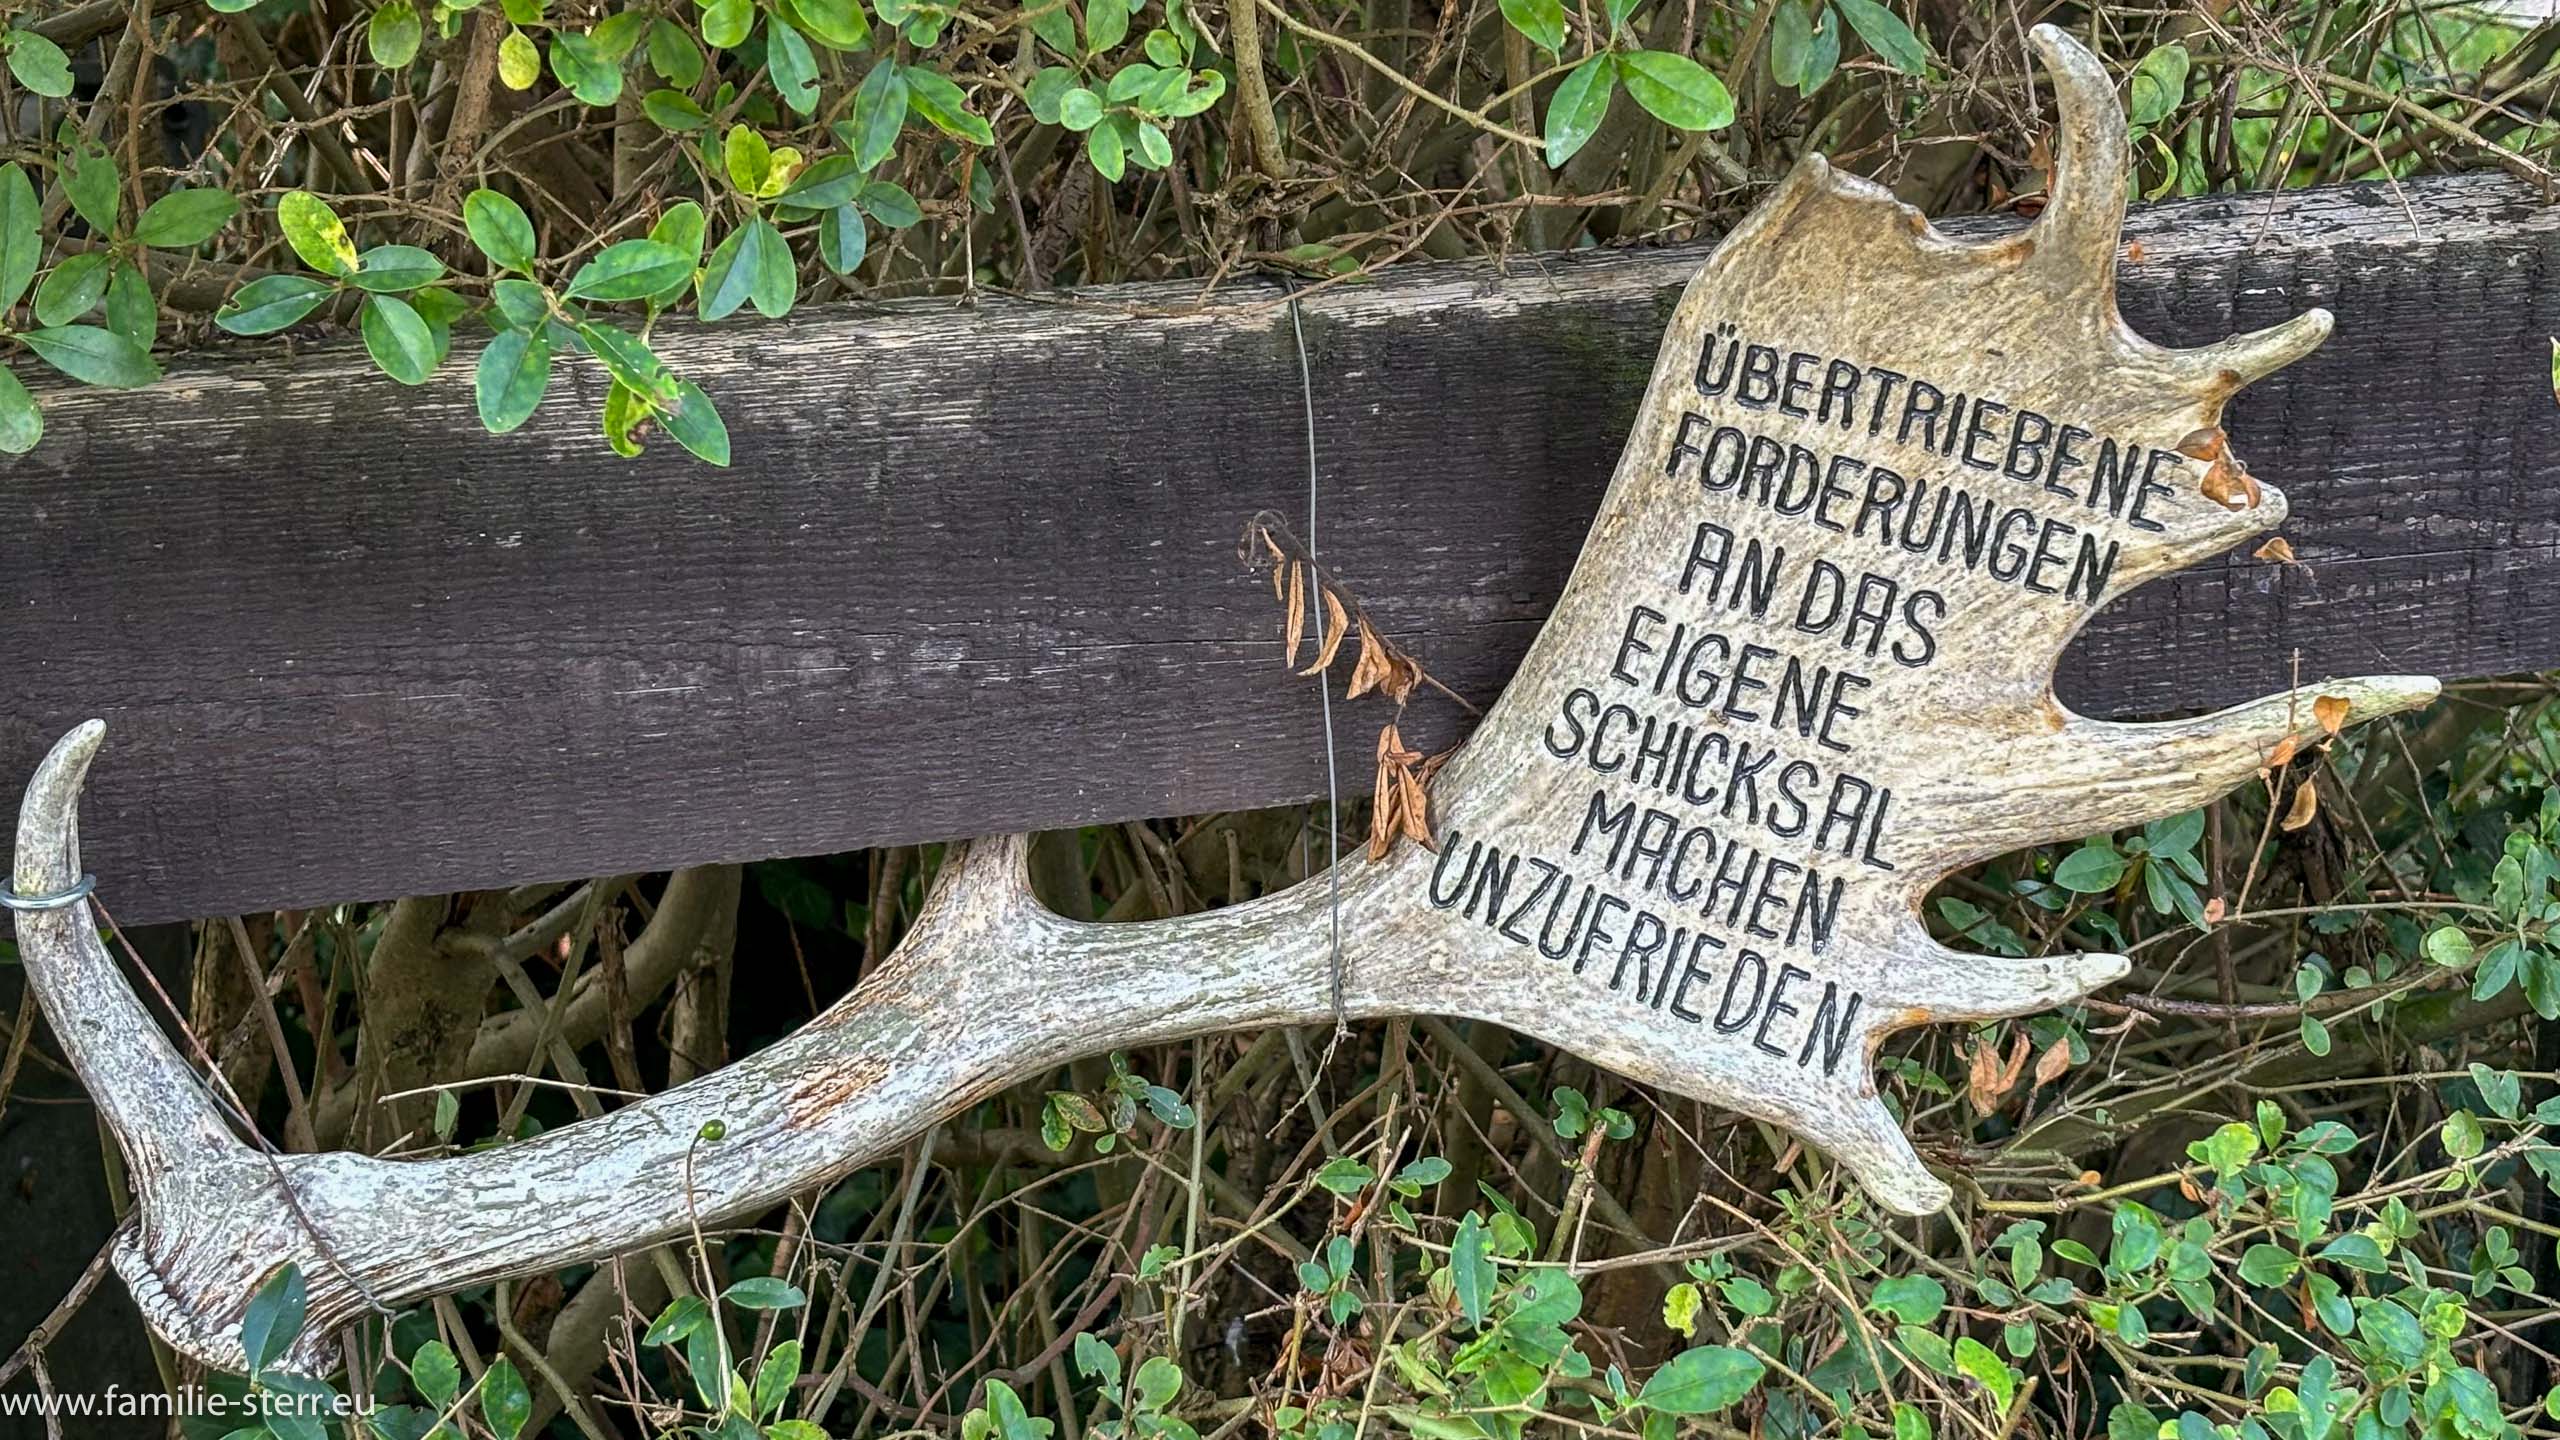 ÜBERTRIEBENE
FORDERUNGEN
AN DAS
EIGENE
SCHICKSAL
MACHEN
UNZUFRIEDEN
www.familie-sterr.eu